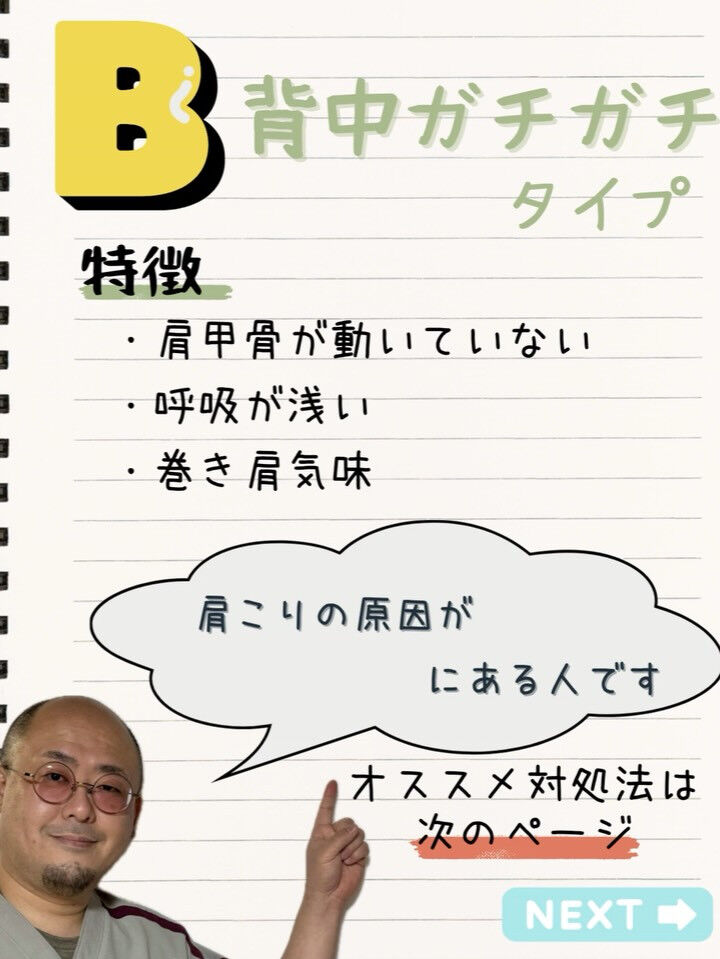 B
背中ガチガチ
タイプ
特徴
・肩甲骨が動いていない
・呼吸が浅い
・巻き肩気味
肩こりの原因が
にある人です
オススメ対処法は
次のページ
NEXT